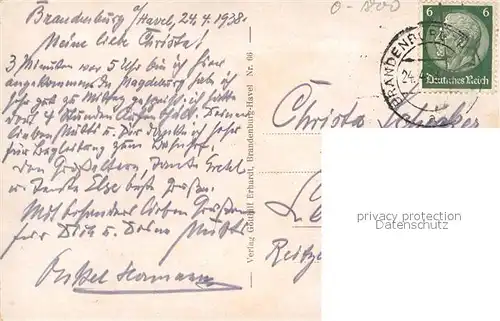 Brandenburg a/Havel, 24.4.1938.
Meine liebe Christa!
3 Minuten vor 5 Uhr bin ich hier
angekommen. In Magdeburg habe ich
sehr gut zu Mittag gespeist, ich hatte
dort 4 Stunden Aufenthalt. Deiner
lieben Mutti u. Dir danke ich sehr
für Begleitung zum Bahnhof.
den Großeltern, Tante Gretel
u. Tante Else beste Grüße.
Mit besonders lieben Grüßen
für Dich u. Deine Mutti
Onkel Hermann
Verlag Gotthilf Erhardt, Brandenburg-Havel Nr. 66
0-1800
6 6
Deutsches Reich
BRANDENBURG
24.4
Christa
Reitz
privacy protection
Datenschutz